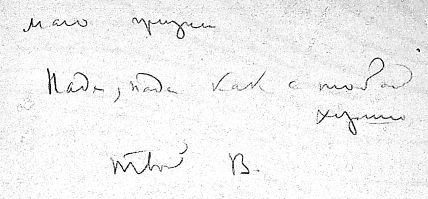 мало жизни
Надя, Надя как с тобой
хорошо
твой В.